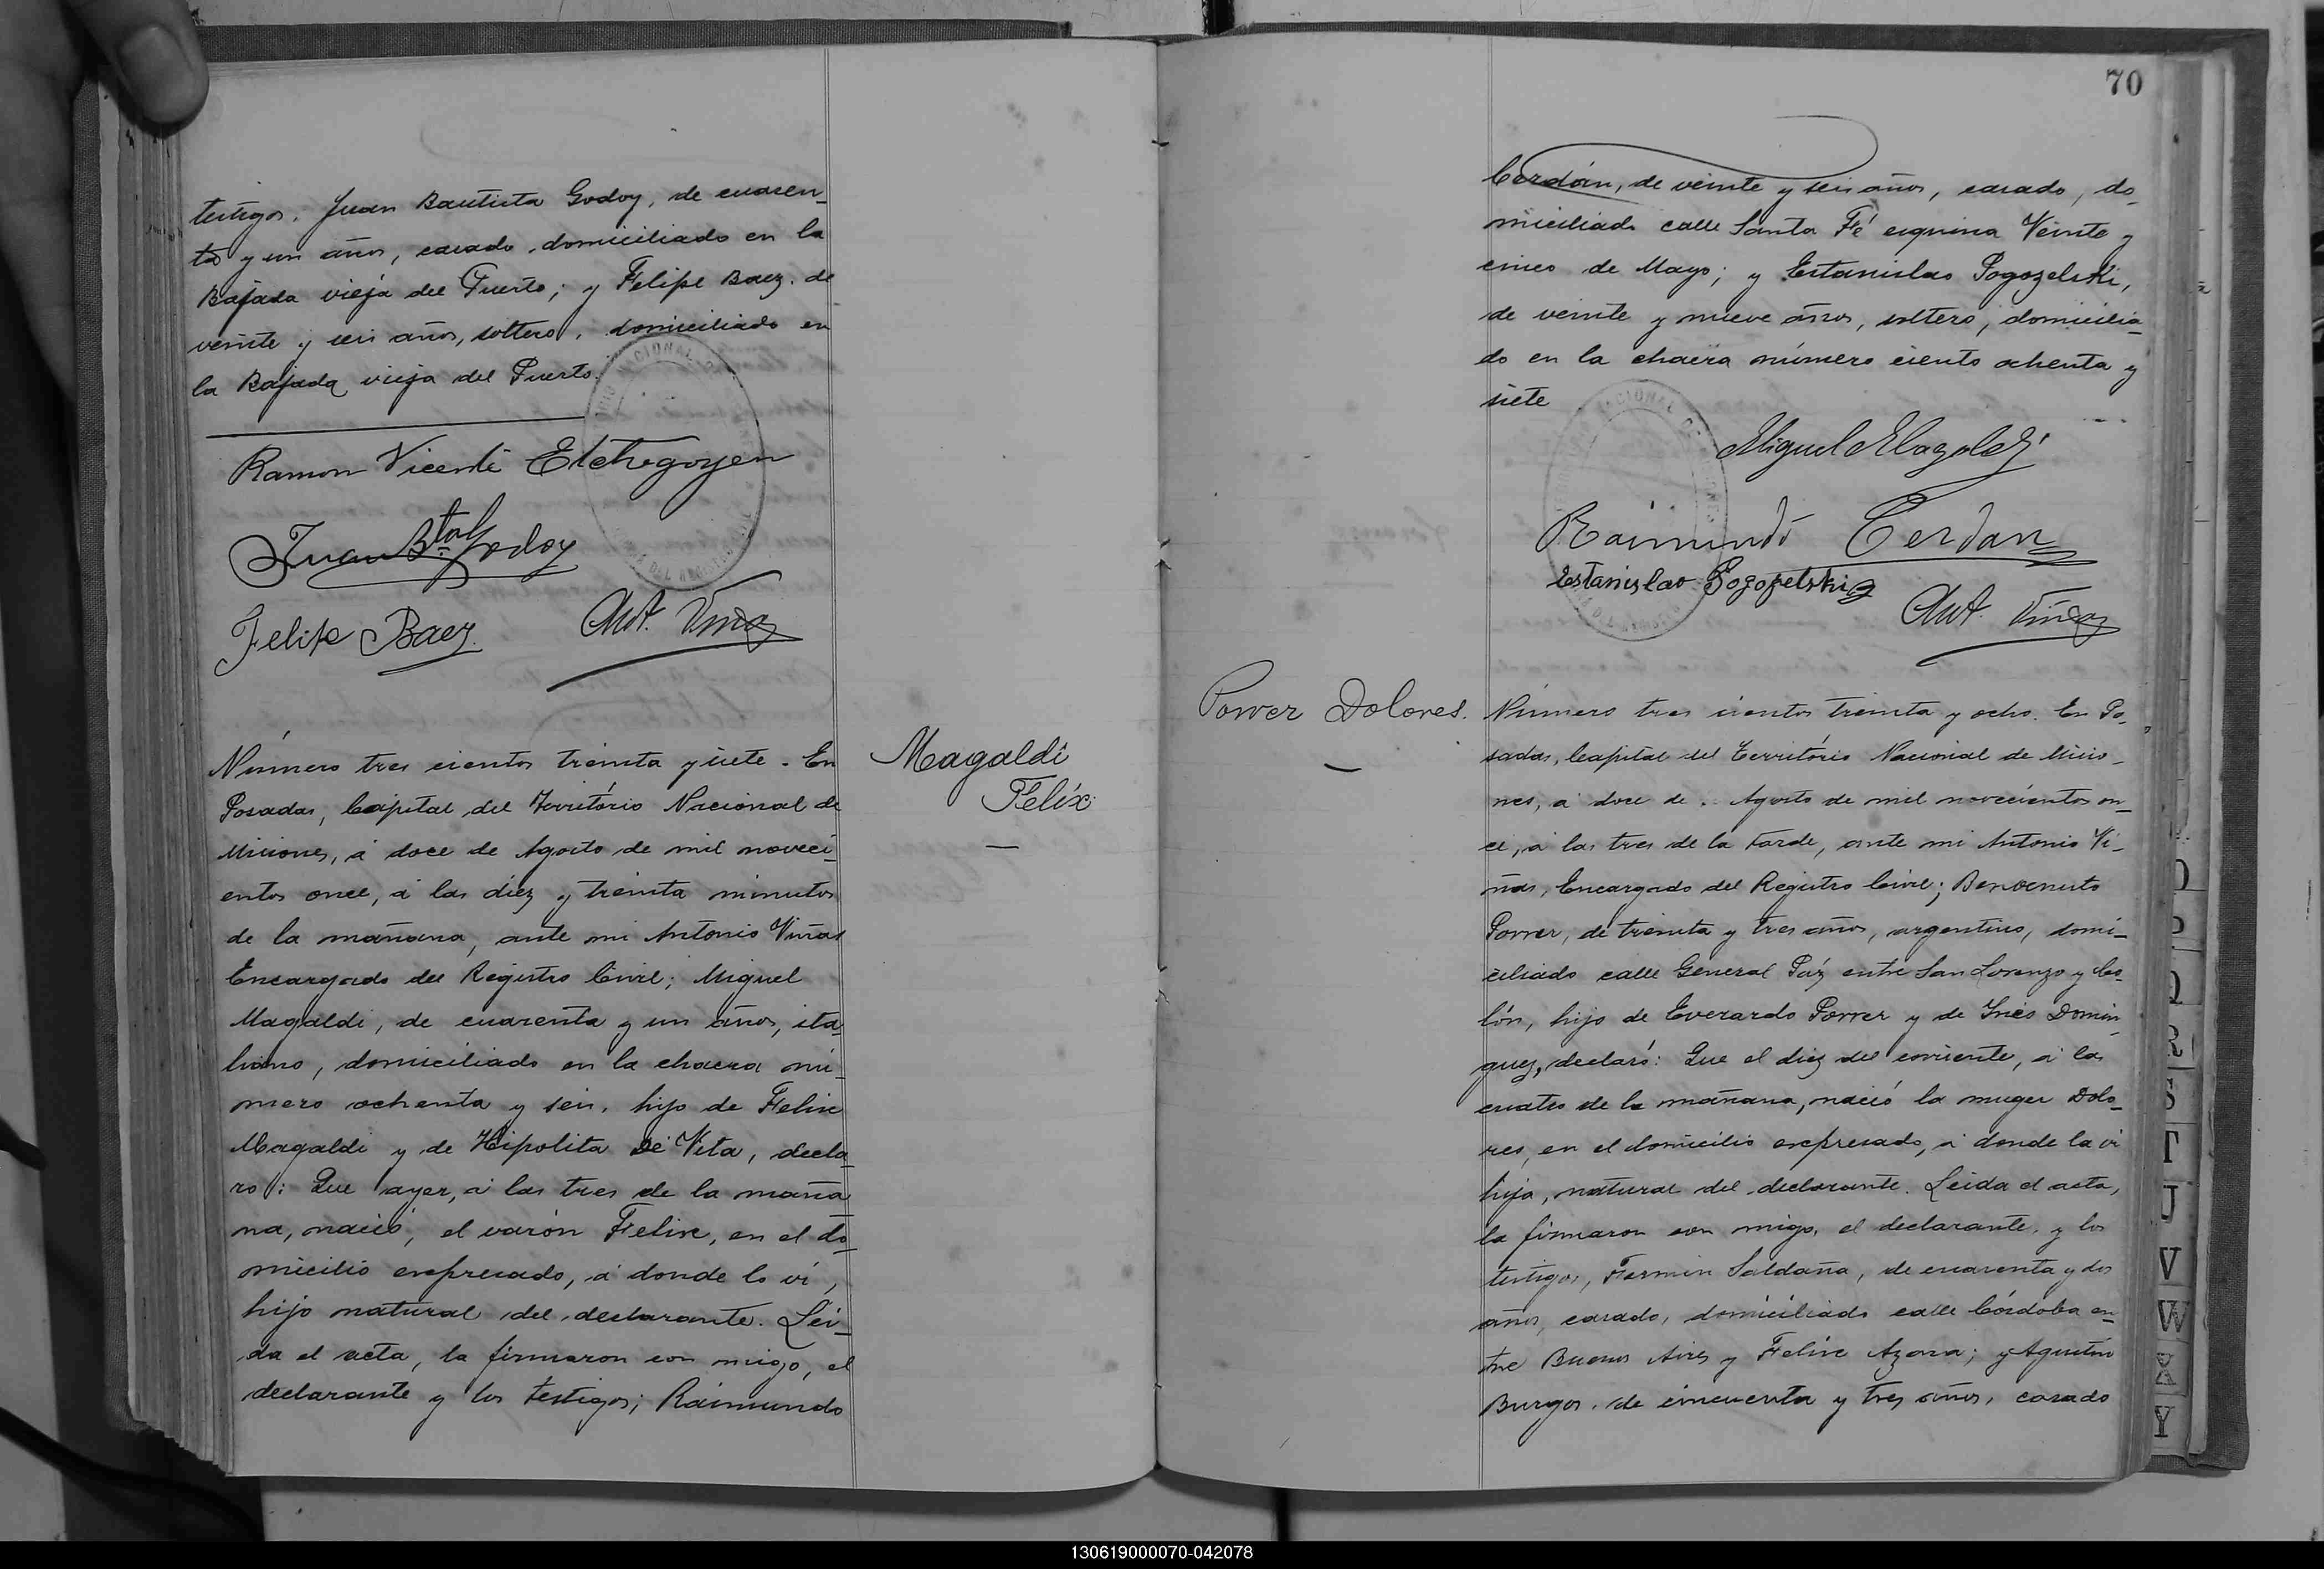 testigos. Juan Bautista Godoy, de cuaren_
ta y un años, casado, domiciliado en la
Bajada vieja del Puerto; y Felipe Baez, de
veinte y seis años, soltero, domiciliado en
la Bajada vieja del Puerto.
Ramon Vicente Etchegoyen
Juan Bta. Godoy
Felipe Baez
Ant. Viñas
Magaldi
Felix
Número tres cientos treinta y siete. En
Posadas, Capital del Território Nacional de
Misiones, á doce de Agosto de mil noveci_
entos once, á las diez y treinta minutos
de la mañana, ante mi Antonio Viñas
Encargado del Registro Civil; Miguel
Magaldi, de cuarenta y un años, ita_
liano, domiciliado en la chacra nú_
mero ochenta y seis, hijo de Felix
Magaldi y de Hipolita De Vita, decla_
ró: Que ayer, á las tres de la maña
na, nació, el varón Felix, en el do_
micilio expresado, á donde lo ví,
hijo natural del declarante. Lei_
da el acta, la firmaron con migo, el
declarante y los testigos; Raimundo
70
Cerdán, de veinte y seis años, casado, do_
miciliado calle Santa Fé esquina Veinte y
cinco de Mayo; y Estanislao Pogozelski,
de veinte y nueve años, soltero, domicilia_
do en la chacra número ciento ochenta y
siete
Miguel Magaldi
Raimundo Cerdan
Estanislao Pogozelski
Ant. Viñas
Power Dolores.
Número tres cientos treinta y ocho. En Po_
sadas, Capital del Território Nacional de Misio_
nes, á doce de Agosto de mil novecientos on_
ce, á las tres de la tarde, ante mi Antonio Vi_
ñas, Encargado del Registro Civil; Benvenuto
Power, de treinta y tres años, argentino, domi_
ciliado calle General Paz entre San Lorenzo y Co_
lón, hijo de Everardo Power y de Inés Domin_
guez, declaró: Que el diez del corriente, á las
cuatro de la mañana, nació la muger Dolo_
res, en el domicilio expresado, á donde la ví
hija, natural del declarante. Leida el acta,
la firmaron con migo, el declarante, y los
testigos, Fermin Saldaña, de cuarenta y dos
años, casado, domiciliado calle Córdoba en_
tre Buenos Aires y Felix Azara; y Agustín
Burgos, de cincuenta y tres años, casado
Q
R
S
T
J
V
W
X
Y
130619000070-042078